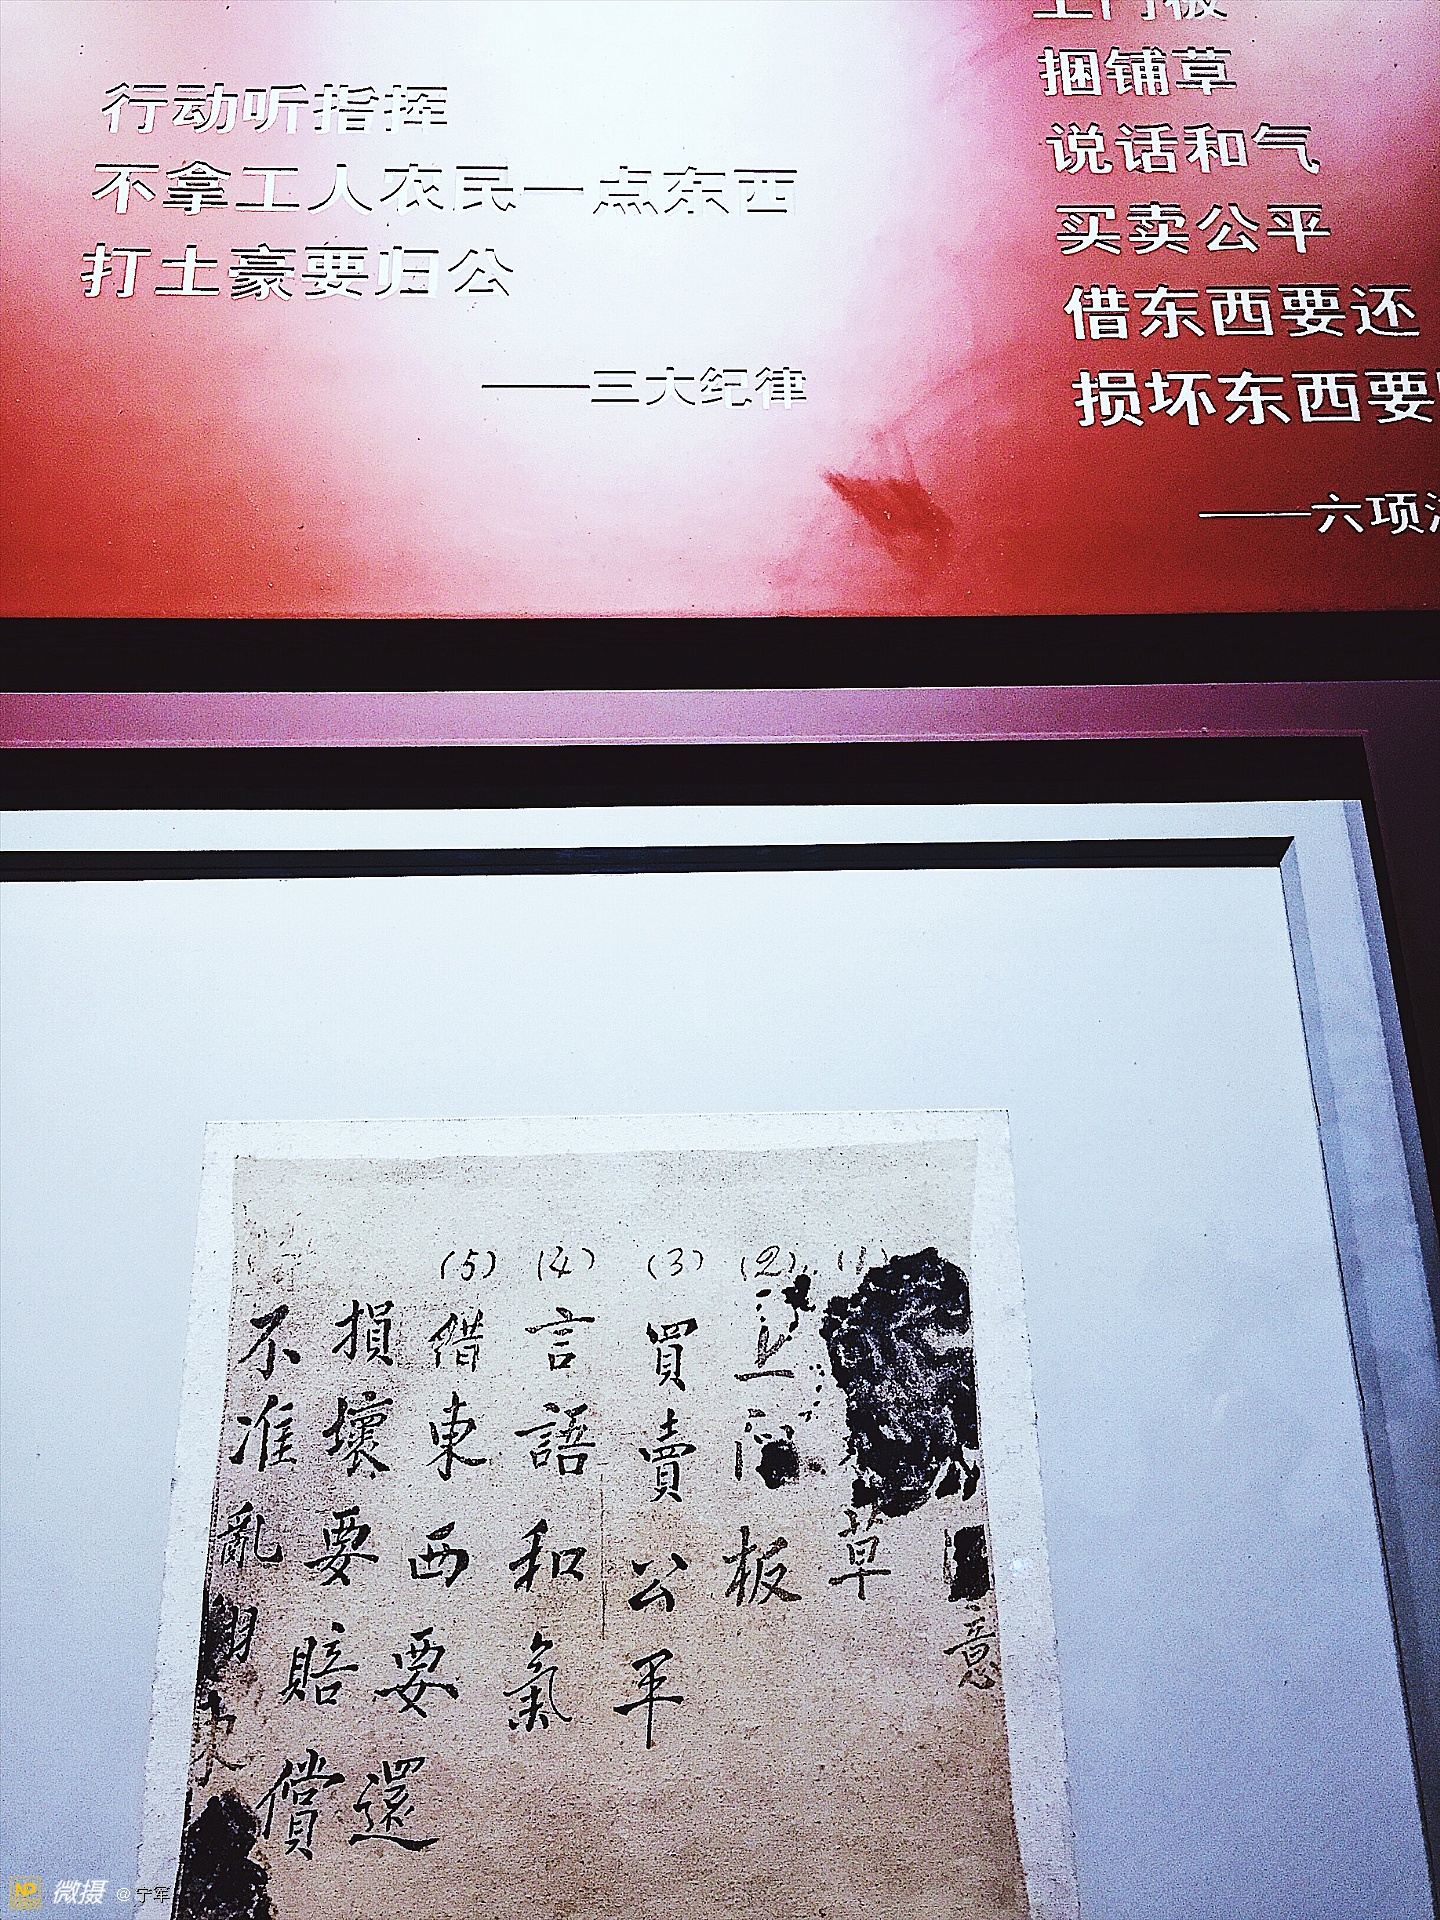 行动听指挥
不拿工人农民一点东西
打土豪要归公
——三大纪律
上门板
捆铺草
说话和气
买卖公平
借东西要还
损坏东西要
——六项
意
(1)草
(2)上门板
(3)買賣公平
(4)言語和氣
(5)借東西要還
損壞要賠償
不准亂
微摄 @宁军